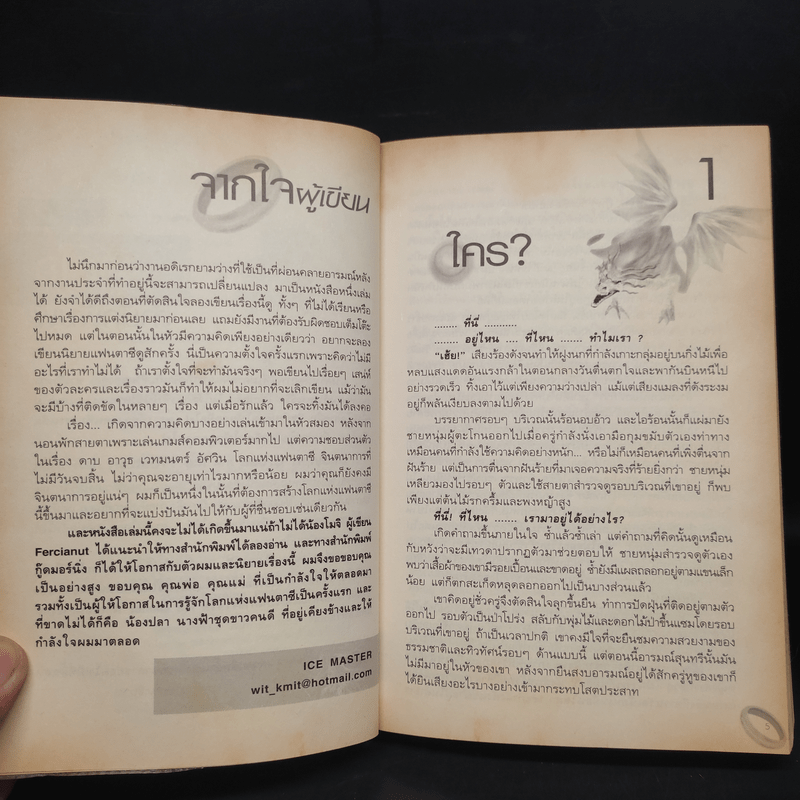 จากใจผู้เขียน
ไม่นึกมาก่อนว่างานอดิเรกยามว่างที่ใช้เป็นที่ผ่อนคลายอารมณ์หลัง
จากงานประจำที่ทำอยู่นี้จะสามารถเปลี่ยนแปลง มาเป็นหนังสือหนึ่งเล่ม
ได้ ยังจำได้ดีถึงตอนที่ตัดสินใจลองเขียนเรื่องนี้ดู ทั้งๆ ที่ไม่ได้เรียนหรือ
ศึกษาเรื่องการแต่งนิยายมาก่อนเลย แถมยังมีงานที่ต้องรับผิดชอบเต็มโต๊ะ
ไปหมด แต่ในตอนนั้นในหัวมีความคิดเพียงอย่างเดียวว่า อยากจะลอง
เขียนนิยายแฟนตาซีดูสักครั้ง นี่เป็นความตั้งใจครั้งแรกเพราะคิดว่าไม่มี
อะไรที่เราทำไม่ได้ ถ้าเราตั้งใจที่จะทำมันจริงๆ พอเขียนไปเรื่อยๆ เสน่ห์
ของตัวละครและเรื่องราวมันก็ทำให้ผมไม่อยากที่จะเลิกเขียน แม้ว่ามัน
จะมีบ้างที่ติดขัดในหลายๆ เรื่อง แต่เมื่อรักแล้ว ใครจะทิ้งมันได้ลงคอ
เรื่อง... เกิดจากความคิดบางอย่างเล่นเข้ามาในหัวสมอง หลังจาก
นอนพักสายตาเพราะเล่นเกมส์คอมพิวเตอร์มากไป แต่ความชอบส่วนตัว
ในเรื่อง ดาบ อาวุธ เวทมนตร์ อัศวิน โลกแห่งแฟนตาซี จินตนาการที่
ไม่มีวันจบสิ้น ไม่ว่าคุณจะอายุเท่าไรมากหรือน้อย ผมว่าคุณก็ยังคงมี
จินตนาการอยู่แน่ๆ ผมก็เป็นหนึ่งในนั้นที่ต้องการสร้างโลกแห่งแฟนตาซี
นี้ขึ้นมาและอยากที่จะแบ่งปันมันไปให้กับผู้ที่ชื่นชอบเช่นเดียวกัน
และหนังสือเล่มนี้คงจะไม่ได้เกิดขึ้นมาแน่ถ้าไม่ได้น้องโมจิ ผู้เขียน
Fercianut ได้แนะนำให้ทางสำนักพิมพ์ได้ลองอ่าน และทางสำนักพิมพ์
กู๊ดมอร์นิ่ง ก็ได้ให้โอกาสกับตัวผมและนิยายเรื่องนี้ ผมจึงขอขอบคุณ
เป็นอย่างสูง ขอบคุณ คุณพ่อ คุณแม่ ที่เป็นกำลังใจให้ตลอดมา
รวมทั้งเป็นผู้ให้โอกาสในการรู้จักโลกแห่งแฟนตาซีเป็นครั้งแรก และ
ที่ขาดไม่ได้ก็คือ น้องปลา นางฟ้าชุดขาวคนดี ที่อยู่เคียงข้างและให้
กำลังใจผมมาตลอด
ICE MASTER
wit_kmit@hotmail.com
1
ใคร?
........ ที่นี่ ..........
........ อยู่ไหน .... ที่ไหน ....... ทำไมเรา ?
"เฮ้ย!" เสียงร้องดังจนทำให้ฝูงนกที่กำลังเกาะกลุ่มอยู่บนกิ่งไม้เพื่อ
หลบแสงแดดอันแรงกล้าในตอนกลางวันตื่นตกใจ และพากันบินหนีไป
อย่างรวดเร็ว ทิ้งเอาไว้แต่เพียงความว่างเปล่า แม้แต่เสียงแมลงที่ดังระงม
อยู่ก็พลันเงียบลงตามไปด้วย
บรรยากาศรอบๆ บริเวณนั้นร้อนอบอ้าว และไอร้อนนั้นก็แผ่มายัง
ชายหนุ่มผู้ตะโกนออกไปเมื่อครู่กำลังนั่งเอามือกุมขมับตัวเองท่าทาง
เหมือนคนที่กำลังใช้ความคิดอย่างหนัก... หรือไม่ก็เหมือนคนที่เพิ่งตื่นจาก
ฝันร้าย แต่เป็นการตื่นจากฝันร้ายที่มาเจอความจริงที่ร้ายยิ่งกว่า ชายหนุ่ม
เหลียวมองไปรอบๆ ตัวและใช้สายตาสำรวจดูรอบบริเวณที่เขาอยู่ ก็พบ
เพียงแต่ต้นไม้รกครึ้มและพงหญ้าสูง
ที่นี่! ที่ไหน ....... เรามาอยู่ได้อย่างไร?
เกิดคำถามขึ้นภายในใจ ซ้ำแล้วซ้ำเล่า แต่คำถามที่คิดนั้นดูเหมือน
กับหวังว่าจะมีเทวดาปรากฏตัวมาช่วยตอบให้ ชายหนุ่มสำรวจดูตัวเอง
พบว่าเสื้อผ้าของเขามีรอยเปื้อนและขาดอยู่ ซ้ำยังมีแผลถลอกอยู่ตามแขนเล็ก
น้อย แต่ก็ตกสะเก็ดหลุดลอกออกไปเป็นบางส่วนแล้ว
เขาคิดอยู่ชั่วครู่จึงตัดสินใจลุกขึ้นยืน ทำการปัดฝุ่นที่ติดอยู่ตามตัว
ออกไป รอบตัวเป็นป่าโปร่ง สลับกับพุ่มไม้และดอกไม้ป่าขึ้นแซมโดยรอบ
บริเวณที่เขาอยู่ ถ้าเป็นเวลาปกติ เขาคงมีใจที่จะยืนชมความสวยงามของ
ธรรมชาติและทิวทัศน์รอบๆ ด้านแบบนี้ แต่ตอนนี้อารมณ์สุนทรีนั้นมัน
ไม่มีมาอยู่ในหัวของเขา หลังจากยืนสงบอารมณ์อยู่ได้สักครู่หูของเขาก็
ได้ยินเสียงอะไรบางอย่างเข้ามากระทบโสตประสาท
5